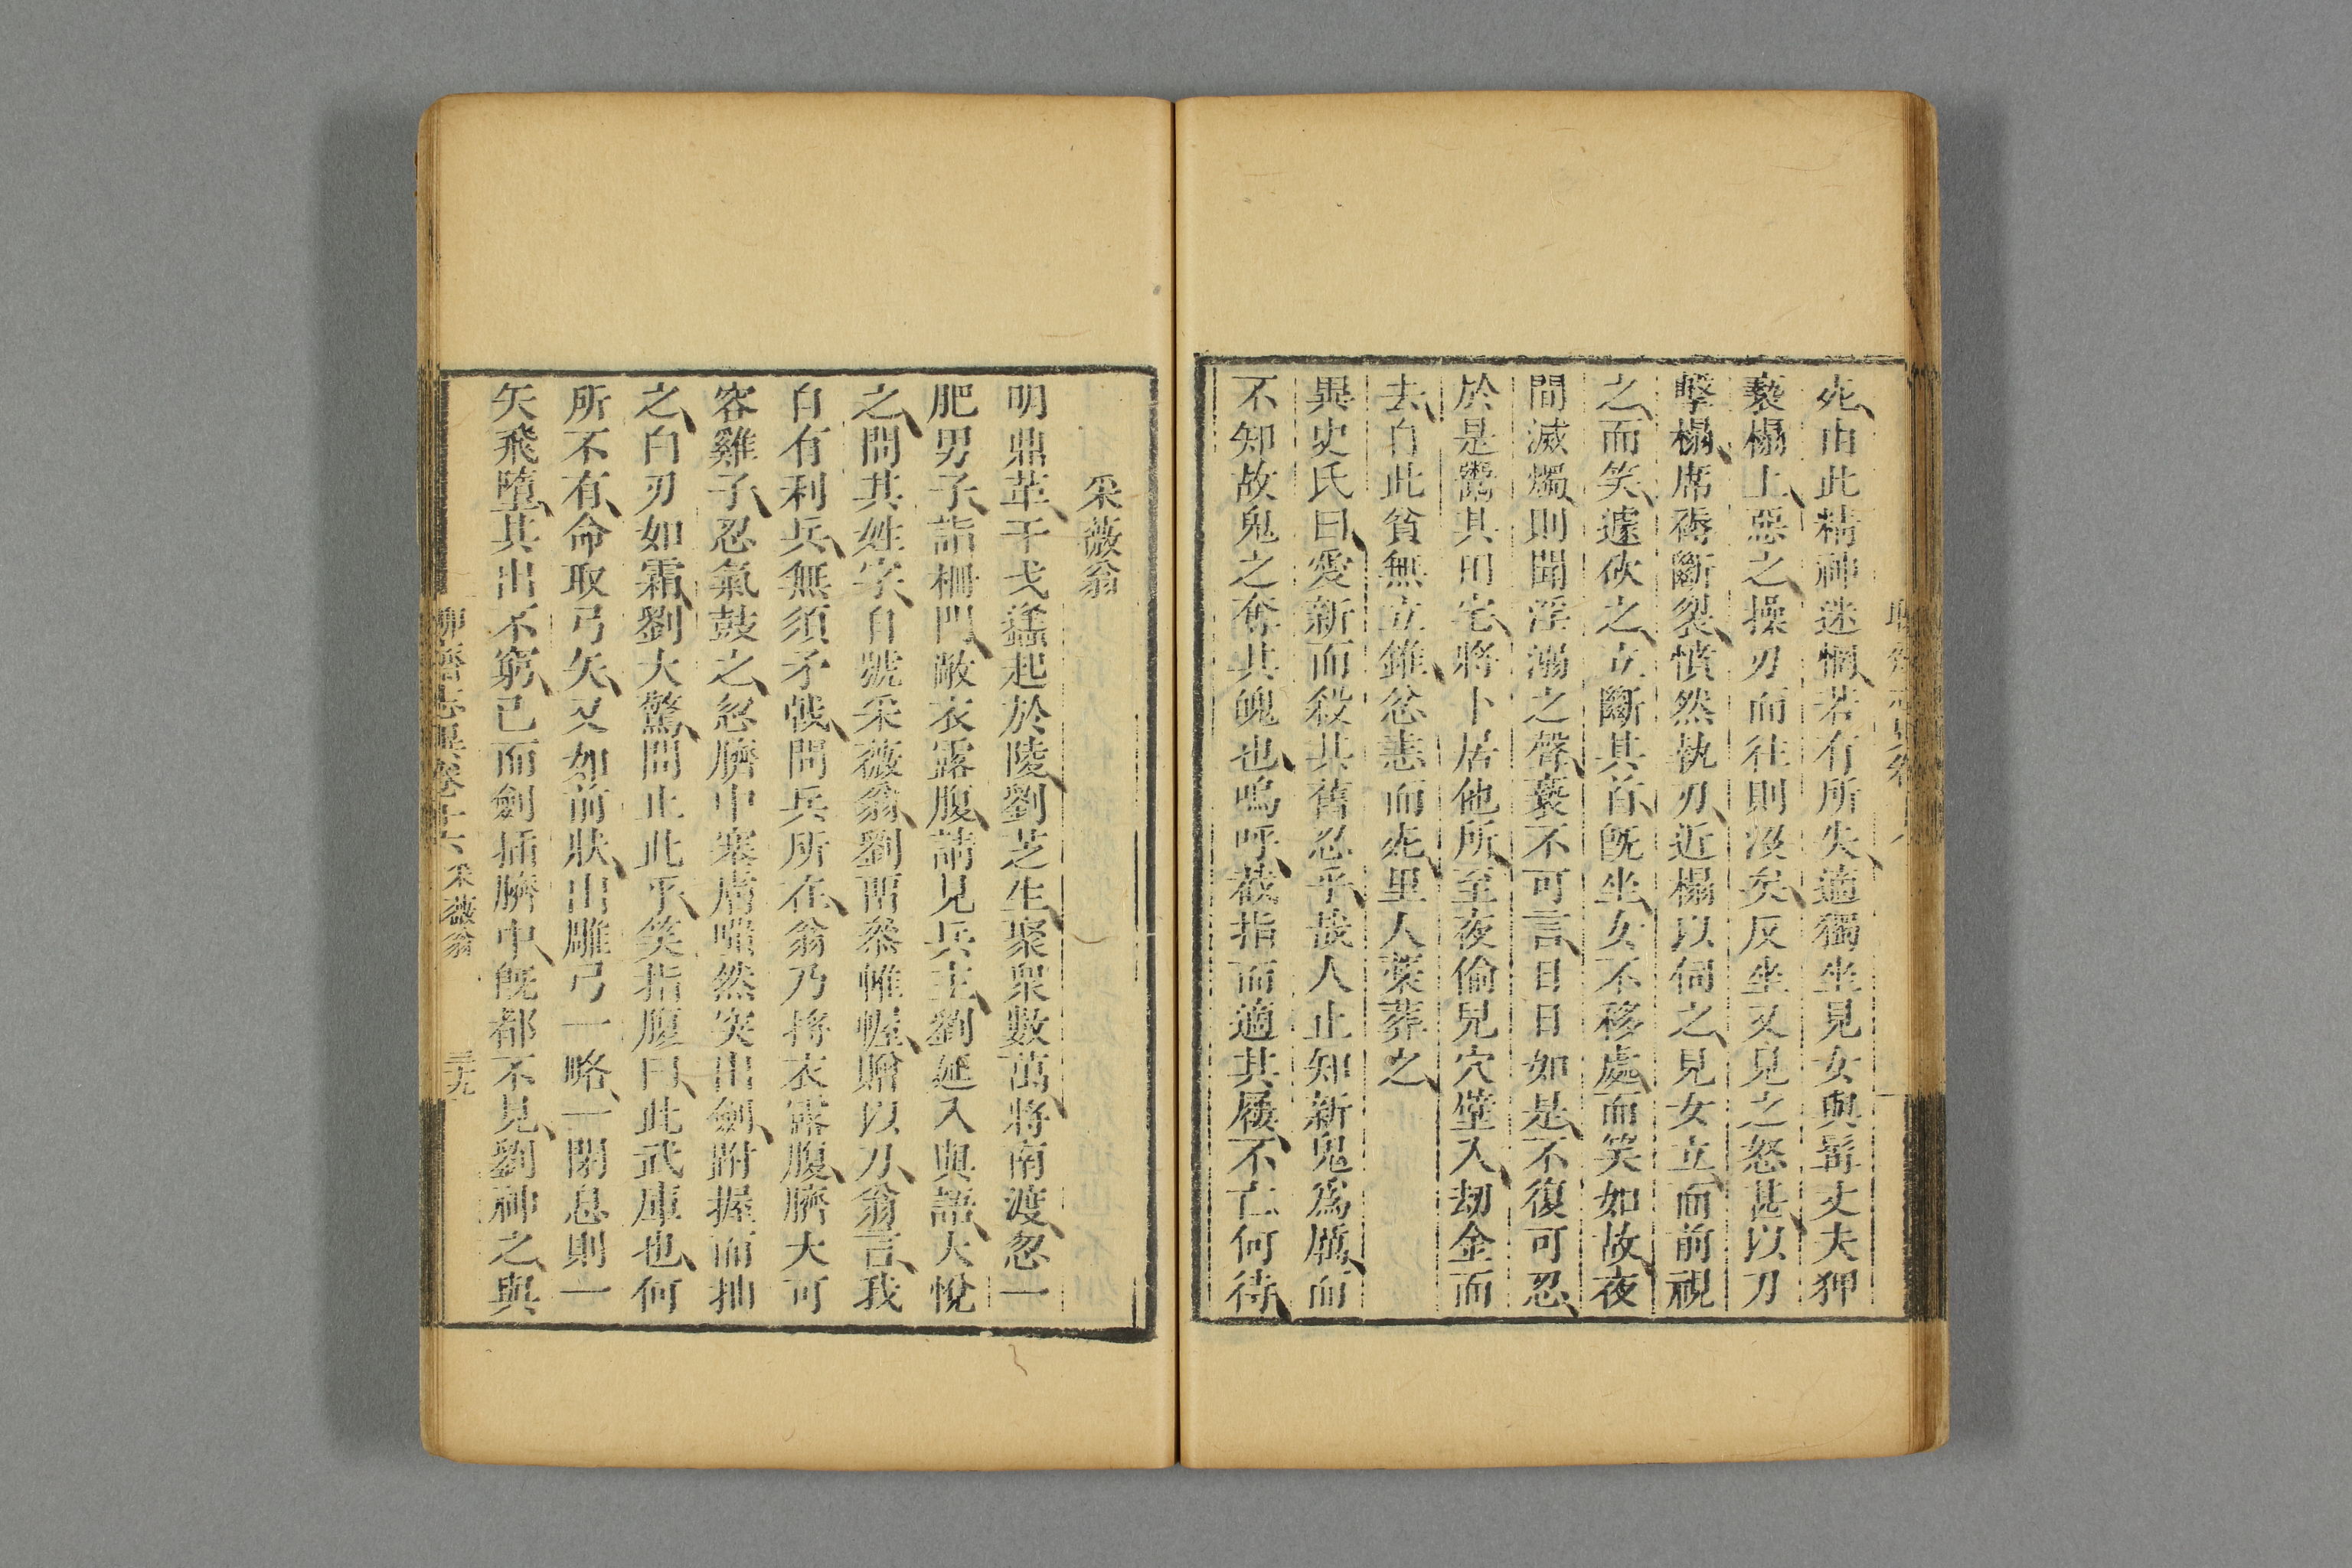 死、由此精神迷惘、若有所失、適獨坐、見女與髥丈夫狎
褻榻上、惡之、操刃而往、則沒矣、反坐又見之、怒甚、以刀
擊榻、席褥斷裂、憤然執刃、近榻以伺之、見女立、而前視
之、而笑、遽砍之、立斷其首、旣坐、女不移處、而笑如故、夜
間滅燭、則聞淫溺之聲、褻不可言、日日如是、不復可忍、
於是鬻其田宅、將卜居他所、至夜偷兒穴壁入、刼金而
去、自此貧無立錐、忿恚而死、里人藁葬之、
異史氏曰、愛新而殺其舊、忍乎哉、人止知新鬼爲厲、而
不知故鬼之奪其魄也、嗚呼、截指而適其屨、不亡何待、
采薇翁
明鼎革、干戈蠭起、於陵、劉芝生、聚衆數萬、將南渡、忽一
肥男子、詣柵門、敝衣露腹、請見兵主、劉延入與語、大悅
之、問其姓字、自號采薇翁、劉㽞叅帷幄、贈以刀、翁言、我
自有利兵、無須矛戟、問兵所在、翁乃捋衣露腹、臍大可
容雞子、忍氣鼓之、忽臍中塞膚、嗤然突出劍、跗握而抽
之、白刃如霜、劉大驚、問止此乎、笑指腹曰、此武庫也、何
所不有、命取弓矢、又如前狀、出雕弓一、略一閉息、則一
矢飛墮、其出不窮、已而劍插臍中、旣都不見、劉神之、與
聊齋志異卷十六 采薇翁 三十九